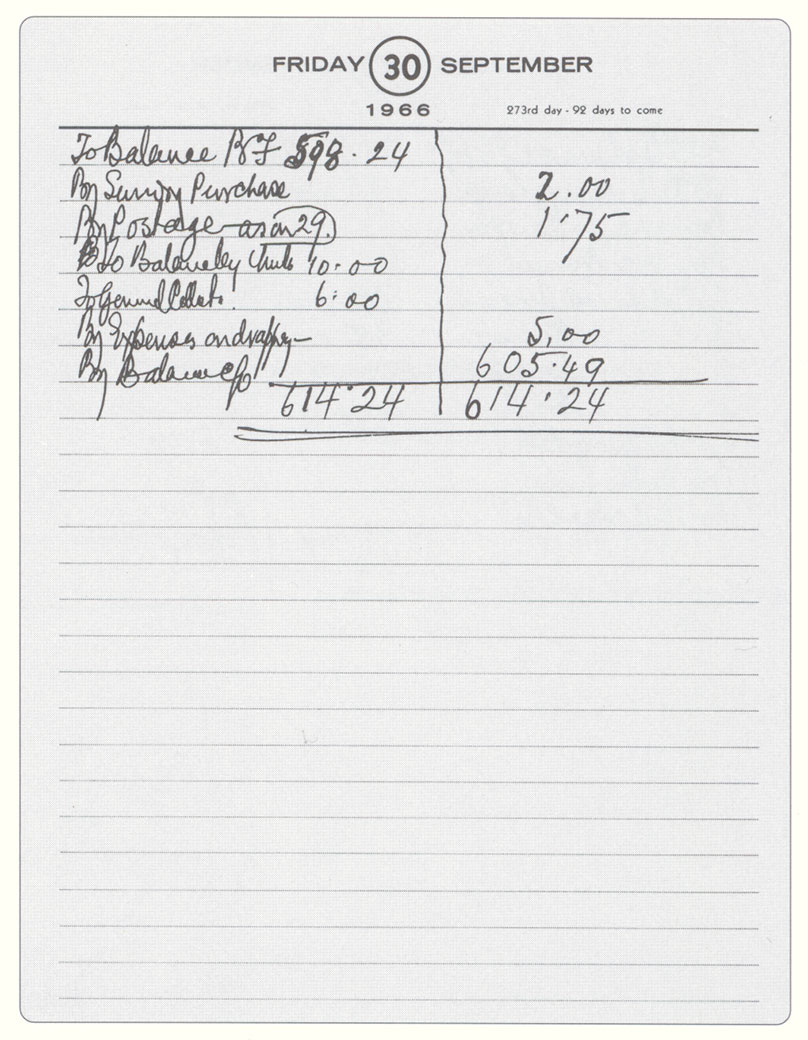 FRIDAY 30 SEPTEMBER
1966 273rd day - 92 days to come
To Balance B F 598.24
By Sundry Purchase 2.00
By Postage as on 29. 1.75
To Balance by 10.00
To 6.00
By Expenses 5.00
By Balance c/o 605.49
614.24 614.24